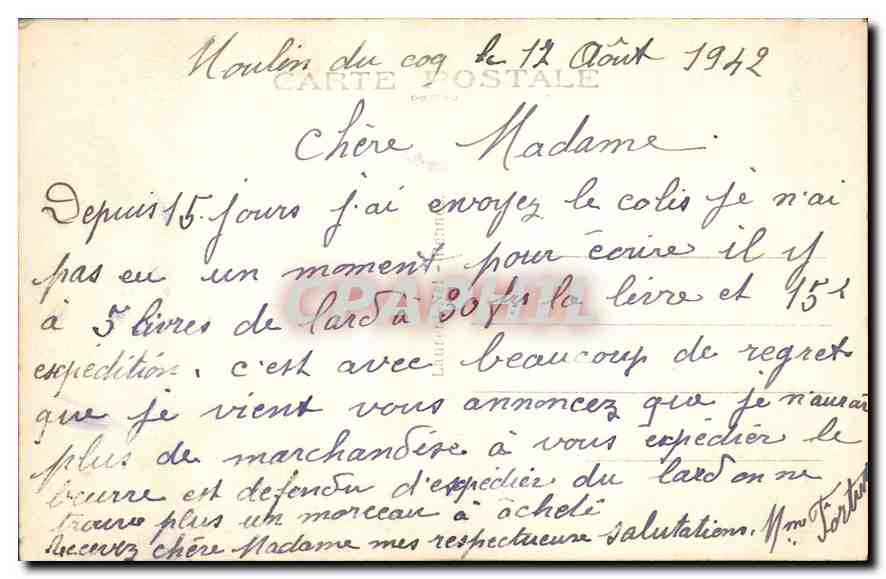 Moulin du coq le 12 Août 1942
CARTE POSTALE
Chère Madame.
Depuis 15 jours j'ai envoyez le colis je n'ai
pas eu un moment pour écrire il y
à 5 livres de lard à 30 frs la livre et 15 
expédition. c'est avec beaucoup de regret
que je vient vous annoncez que je n'aurai
plus de marchandise à vous expédier le
beurre est defendu d'expédier du lard on ne
trouve plus un morceau à acheté
Recevez chère Madame mes respectueuse salutations. Mme
CPAPHIL